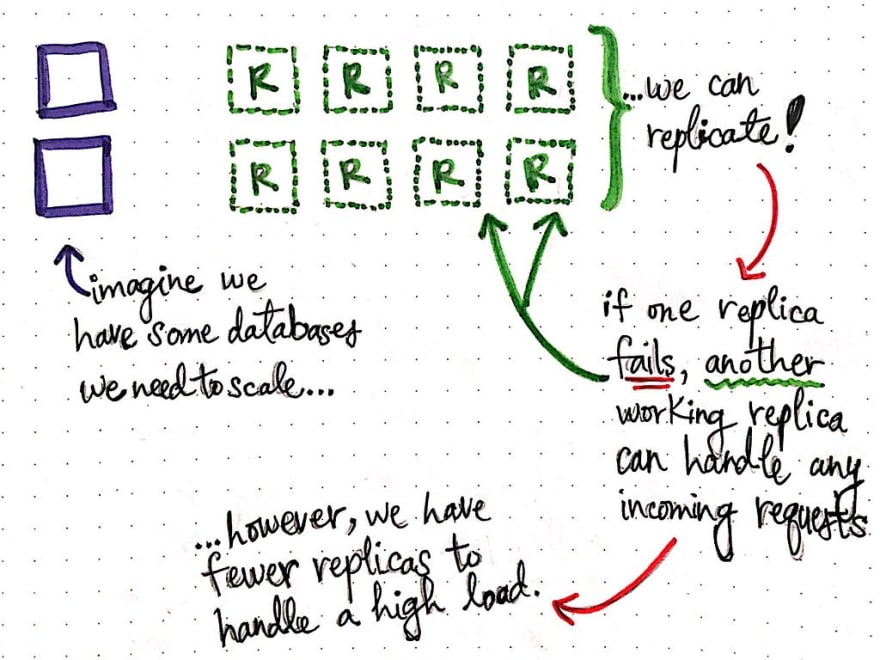 R R R R
R R R R
...we can
replicate!
imagine we
have some databases
we need to scale...
if one replica
fails, another
working replica
can handle any
incoming requests
...however, we have
fewer replicas to
handle a high load.